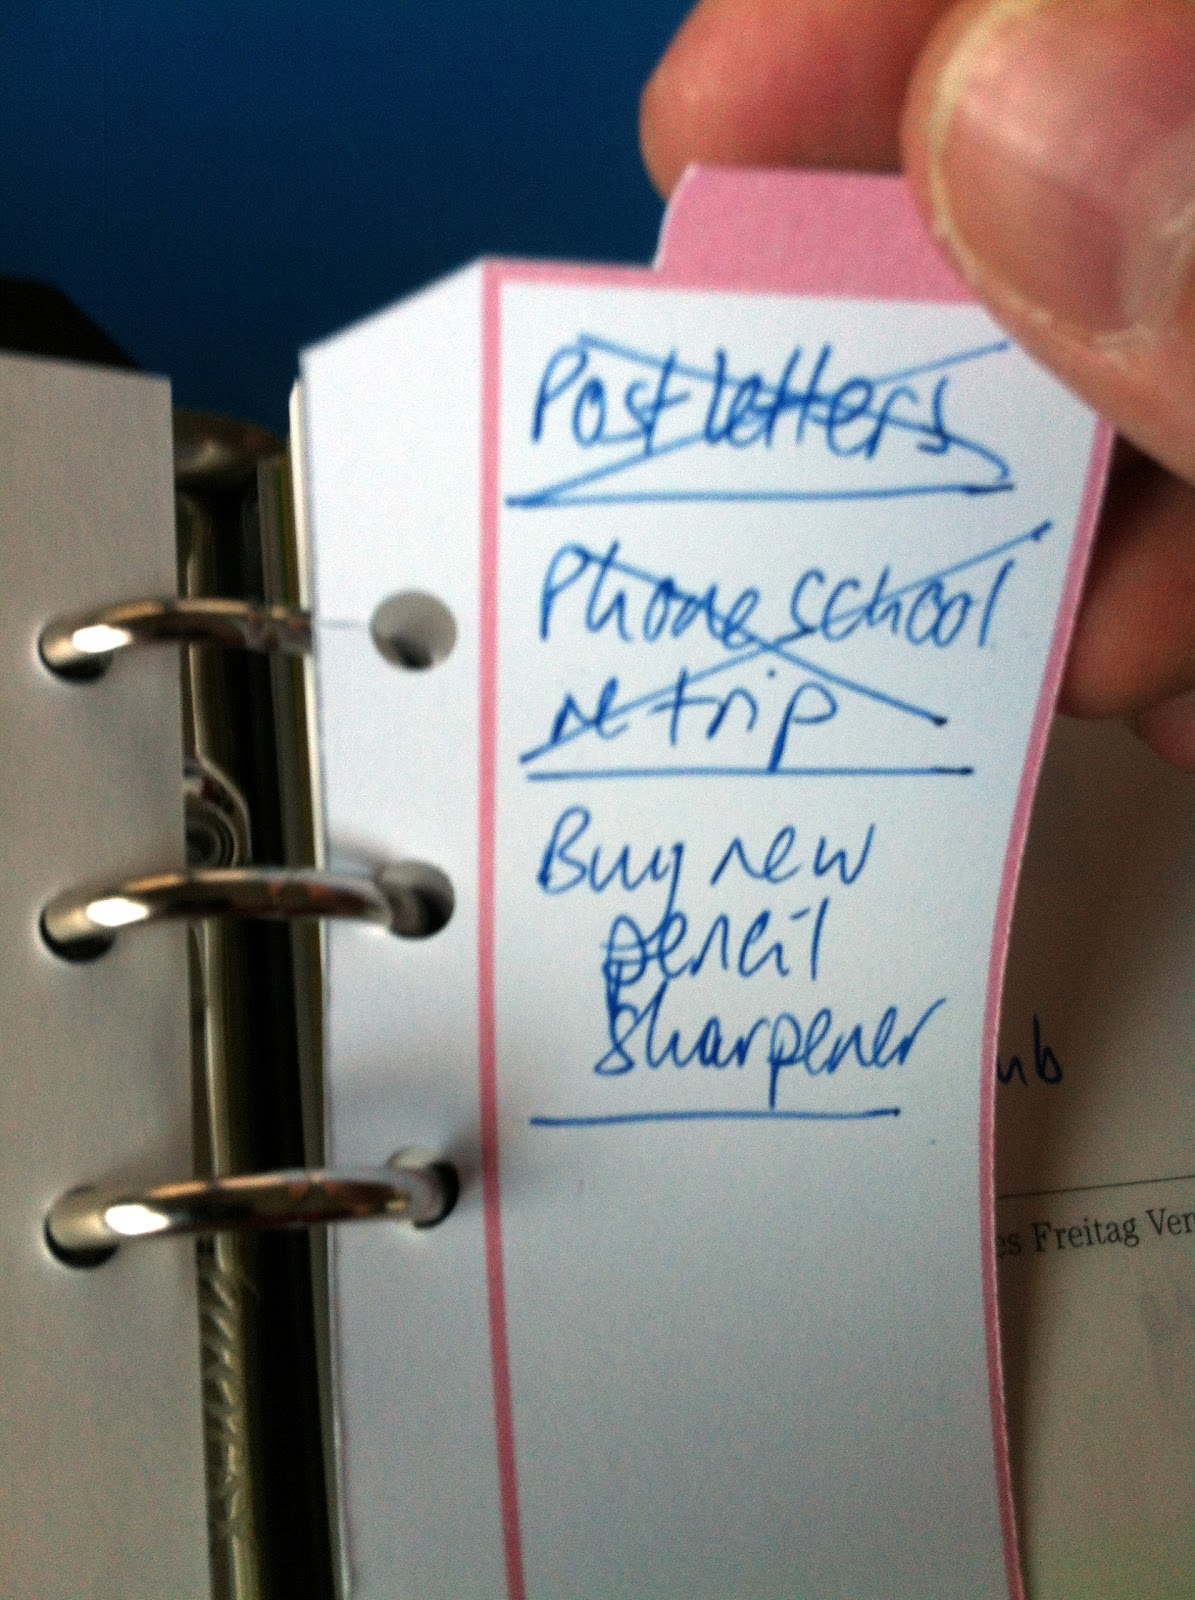 Post letters
Phone school
re trip
Buy new
pencil
sharpener
es Freitag Ver